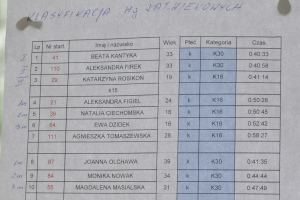 KLASYFIKACJA
Lp Nr start. Imię i nazwisko Wiek Płeć Kategoria Czas
I 1 41 BEATA KANTYKA 33 k K30 0:40:33
2 110 ALEKSANDRA FIREK 38 k K30 0:40:58
3 29 KATARZYNA ROSIKON 19 k K18 0:41:14
k15
4 21 ALEKSANDRA FIGIEL K16 0:50:28
5 NATALIA CIECHOMSKA k K16 0:50:45
6 84 EWA DZIDEK k K16 0:52:42
7 111 AGNIESZKA TOMASZEWSKA 28 k K16 0:58:27
8 87 JOANNA OLCHAWA 39 k K30 0:41:35
9 84 MONIKA NOWAK 34 k K30 0:44:44
10 55 MAGDALENA MASIALSKA 31 k K30 0:47:49